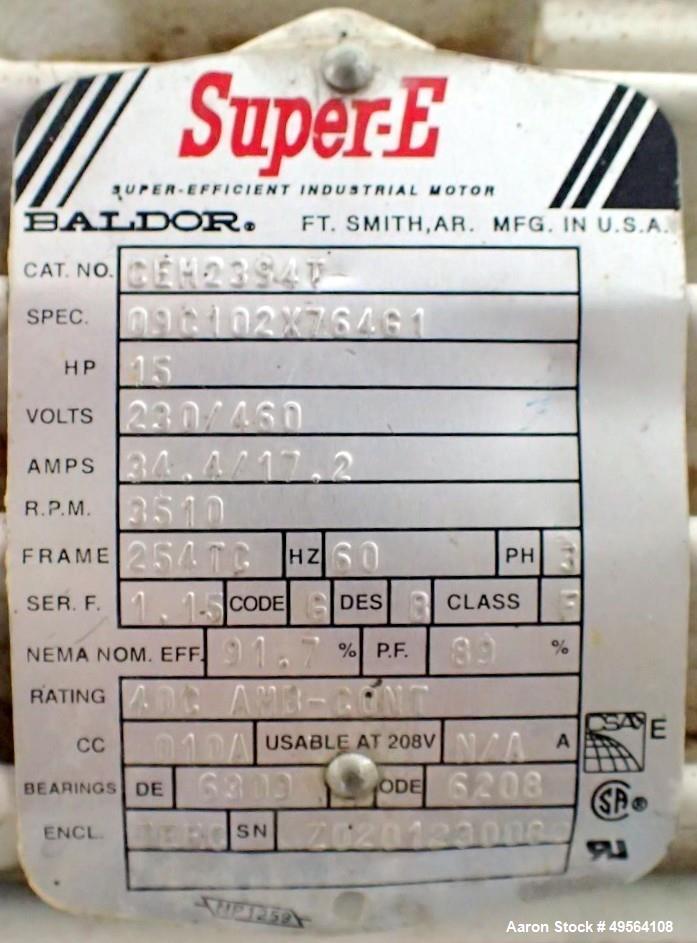 Super-E
SUPER-EFFICIENT INDUSTRIAL MOTOR
BALDOR® FT. SMITH, AR. MFG. IN U.S.A.
CAT. NO. CEM2394T
SPEC. 09C102X764G1
HP 15
VOLTS 230/460
AMPS 34.4/17.2
R.P.M. 3510
FRAME 254TC HZ 60 PH 3
SER. F. 1.15 CODE G DES B CLASS F
NEMA NOM. EFF. 91.7 % P.F. 89 %
RATING 40C AMB-CONT
CC 010A USABLE AT 208V N/A A
BEARINGS DE 6309 ODE 6208
ENCL. SN
CSA E
SA ®
MP1259
Aaron Stock # 49564108